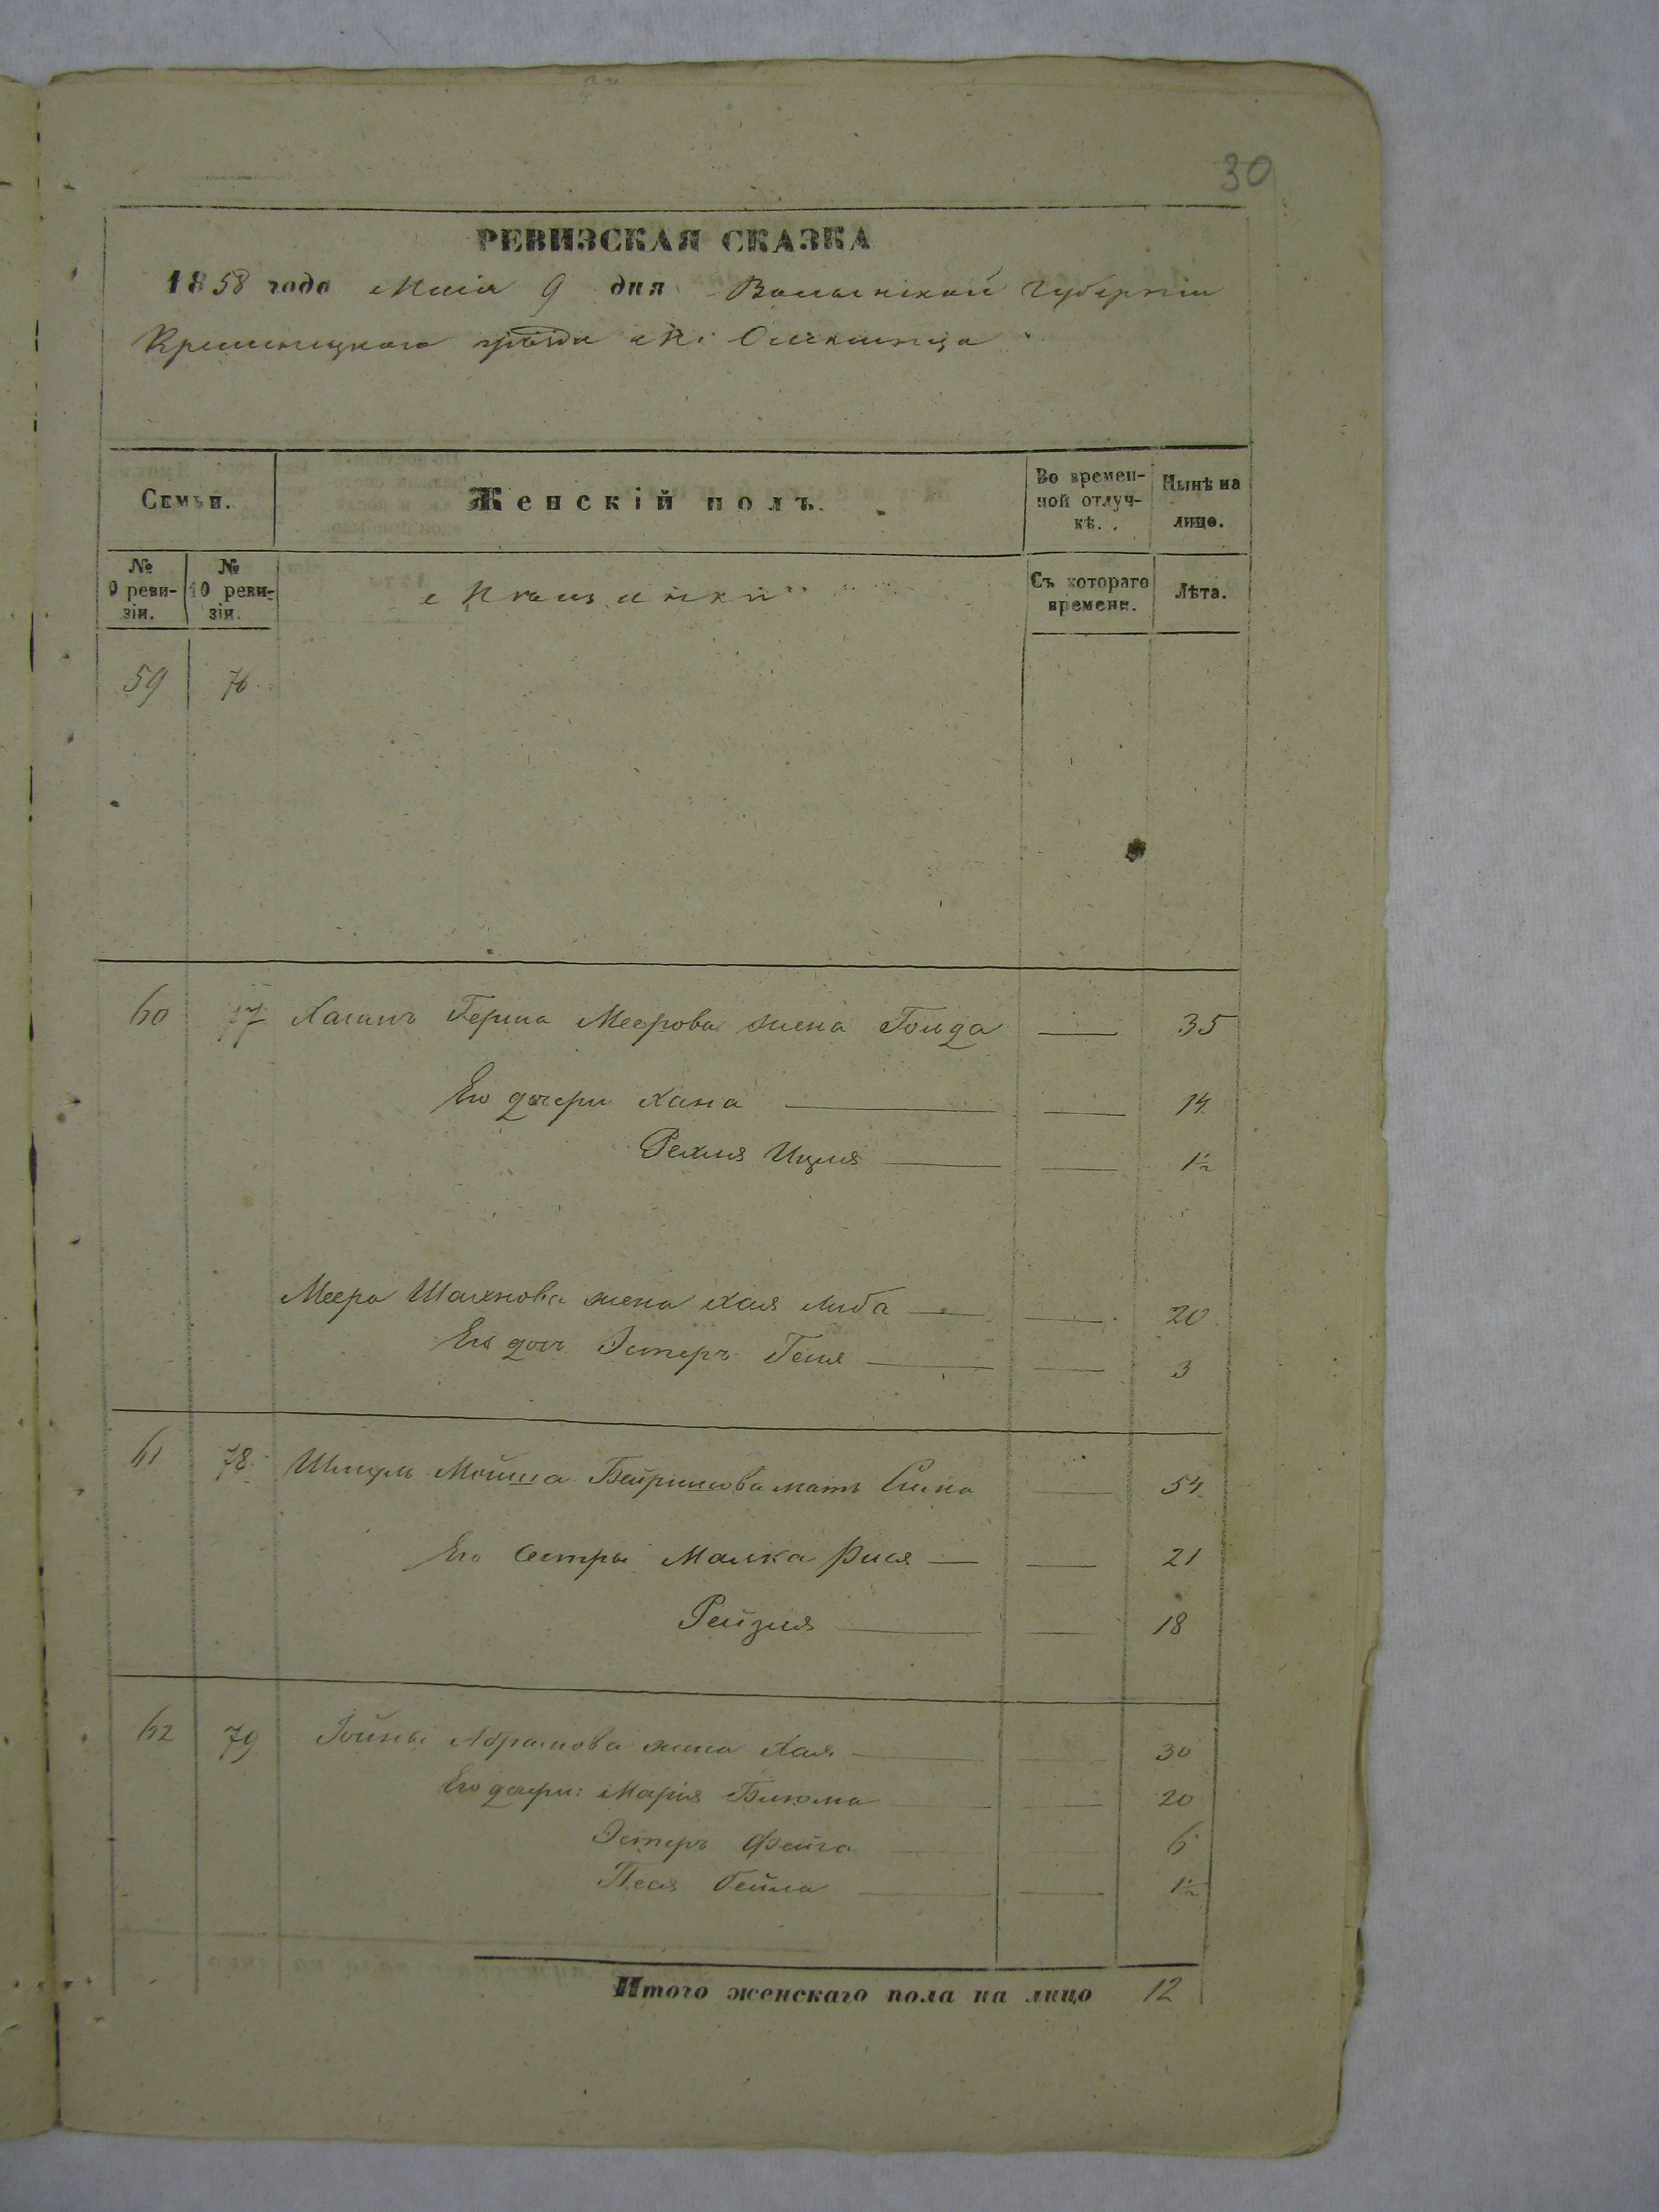 30
РЕВИЗСКАЯ СКАЗКА
1858 года Маія 9 дня Волынской Губерніи
Кременецкаго уѣзда
Семьи. Женскій полъ. Во времен-ной отлуч-кѣ. Нынѣ на лицо.
№ 9 реви-зіи. № 10 реви-зіи. Мѣщанскій Съ котораго времени. Лѣта.
59 76
60 77 Герша Меерова жена Голда — 35
Его дочери Хана — — 14
Рехля — — 1½
Меера Шахнова жена Хая Либа — — 20
Его дочь Эстеръ Геня — — 3
61 78 Мойша мать — 54
Его Сестры Малка Рися — — 21
Рейзля — — 18
62 79 Іойны Абрамова жена Хая — — 30
Его дочери: Марія Блюма — — 20
Эстеръ Фейга — — 6
Песя Бейла — — 1½
Итого женскаго пола на лицо 12